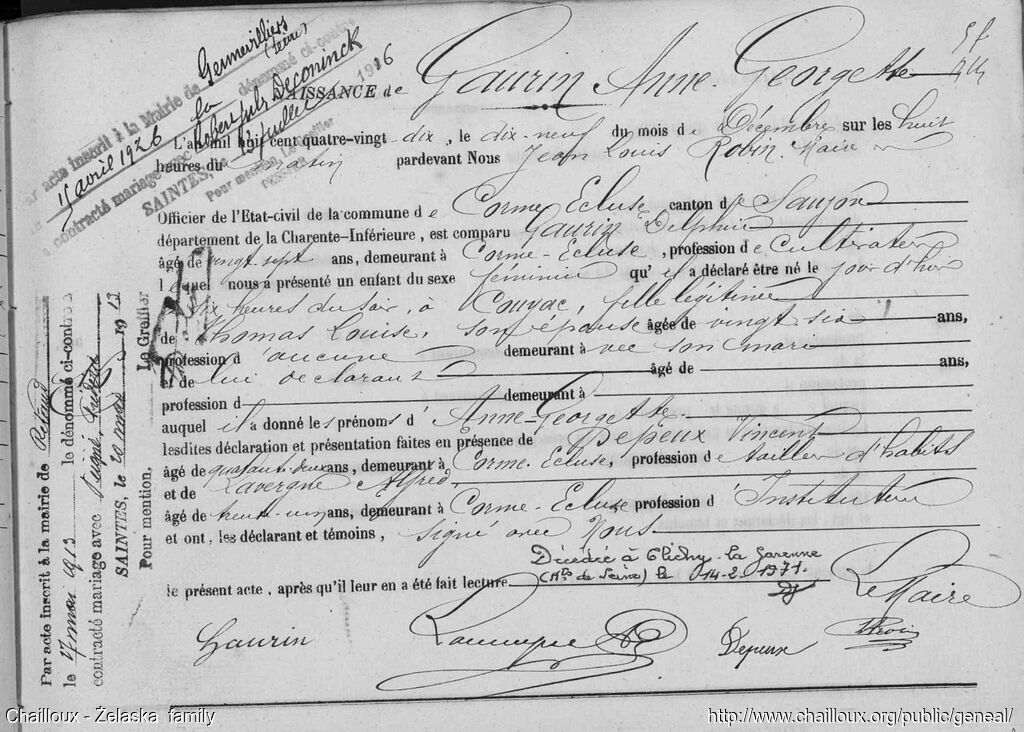 NAISSANCE de Gaurin Anne Georgette
L'an mil huit cent quatre-vingt dix, le dix-neuf du mois de Décembre sur les huit
heures du matin pardevant Nous Jean Louis Robin, Maire
Officier de l'Etat-civil de la commune de Corme Ecluse canton de Saujon
département de la Charente-Inférieure, est comparu Gaurin Delphin
âgé de vingt sept ans, demeurant à Corme-Ecluse, profession de Cultivateur
lequel nous a présenté un enfant du sexe féminin qu'il a déclaré être né le jour d'hier
six heures du soir, à Couvac, fille légitime
de Thomas Louise, son épouse âgée de vingt six ans,
profession d'aucune demeurant avec son mari
et de lui déclarant âgé de ans,
profession d demeurant à
auquel il a donné les prénoms d'Anne-Georgette.
lesdites déclaration et présentation faites en présence de Depeux Vincent
âgé de quarante deux ans, demeurant à Corme-Ecluse, profession de tailleur d'habits
et de Lavergne Alfred,
âgé de trente-un ans, demeurant à Corme-Ecluse profession d'Instituteur
et ont, les déclarant et témoins, signé avec Nous
le présent acte, après qu'il leur en a été fait lecture
Décédée à Clichy-la Garenne
(Hts de Seine) le 14-2-1971.
Le Maire
Gaurin
Lavergne
Depeux
Robin
Par acte inscrit à la Mairie de Gennevilliers
(Seine)
le 15 avril 1926 a
contracté mariage avec Robert Jules Deconinck dénommé ci-contre
SAINTES, le 13 juillet 1926
Pour mention, Le Greffier
Par acte inscrit à la mairie de Rétaud
le 17 mars 1913 le dénommé ci-contre
contracté mariage avec
SAINTES, le 20 mars 1913
Pour mention, Le Greffier
Chailloux - Želaska family
http://www.chailloux.org/public/geneal/